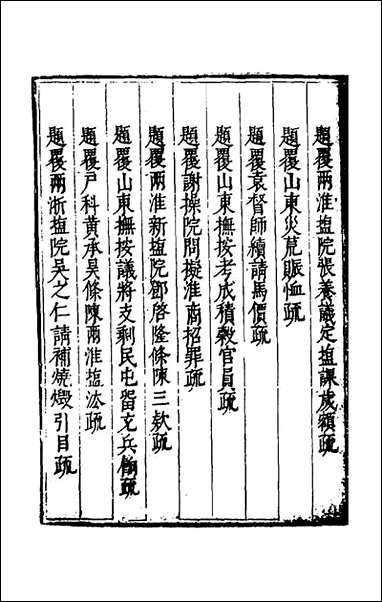 題覆兩淮塩院張養議定塩課歲額疏
題覆山東災荒賑恤疏
題覆袁督師續請馬價疏
題覆山東撫按考成積穀官員疏
題覆謝操院問擬淮商招罪疏
題覆兩淮新塩院鄧啓隆條陳三款疏
題覆山東撫按議將支剩民屯留充兵餉疏
題覆戶科黃承昊條陳兩淮塩法疏
題覆兩浙塩院吴之仁請補燒燬引目疏